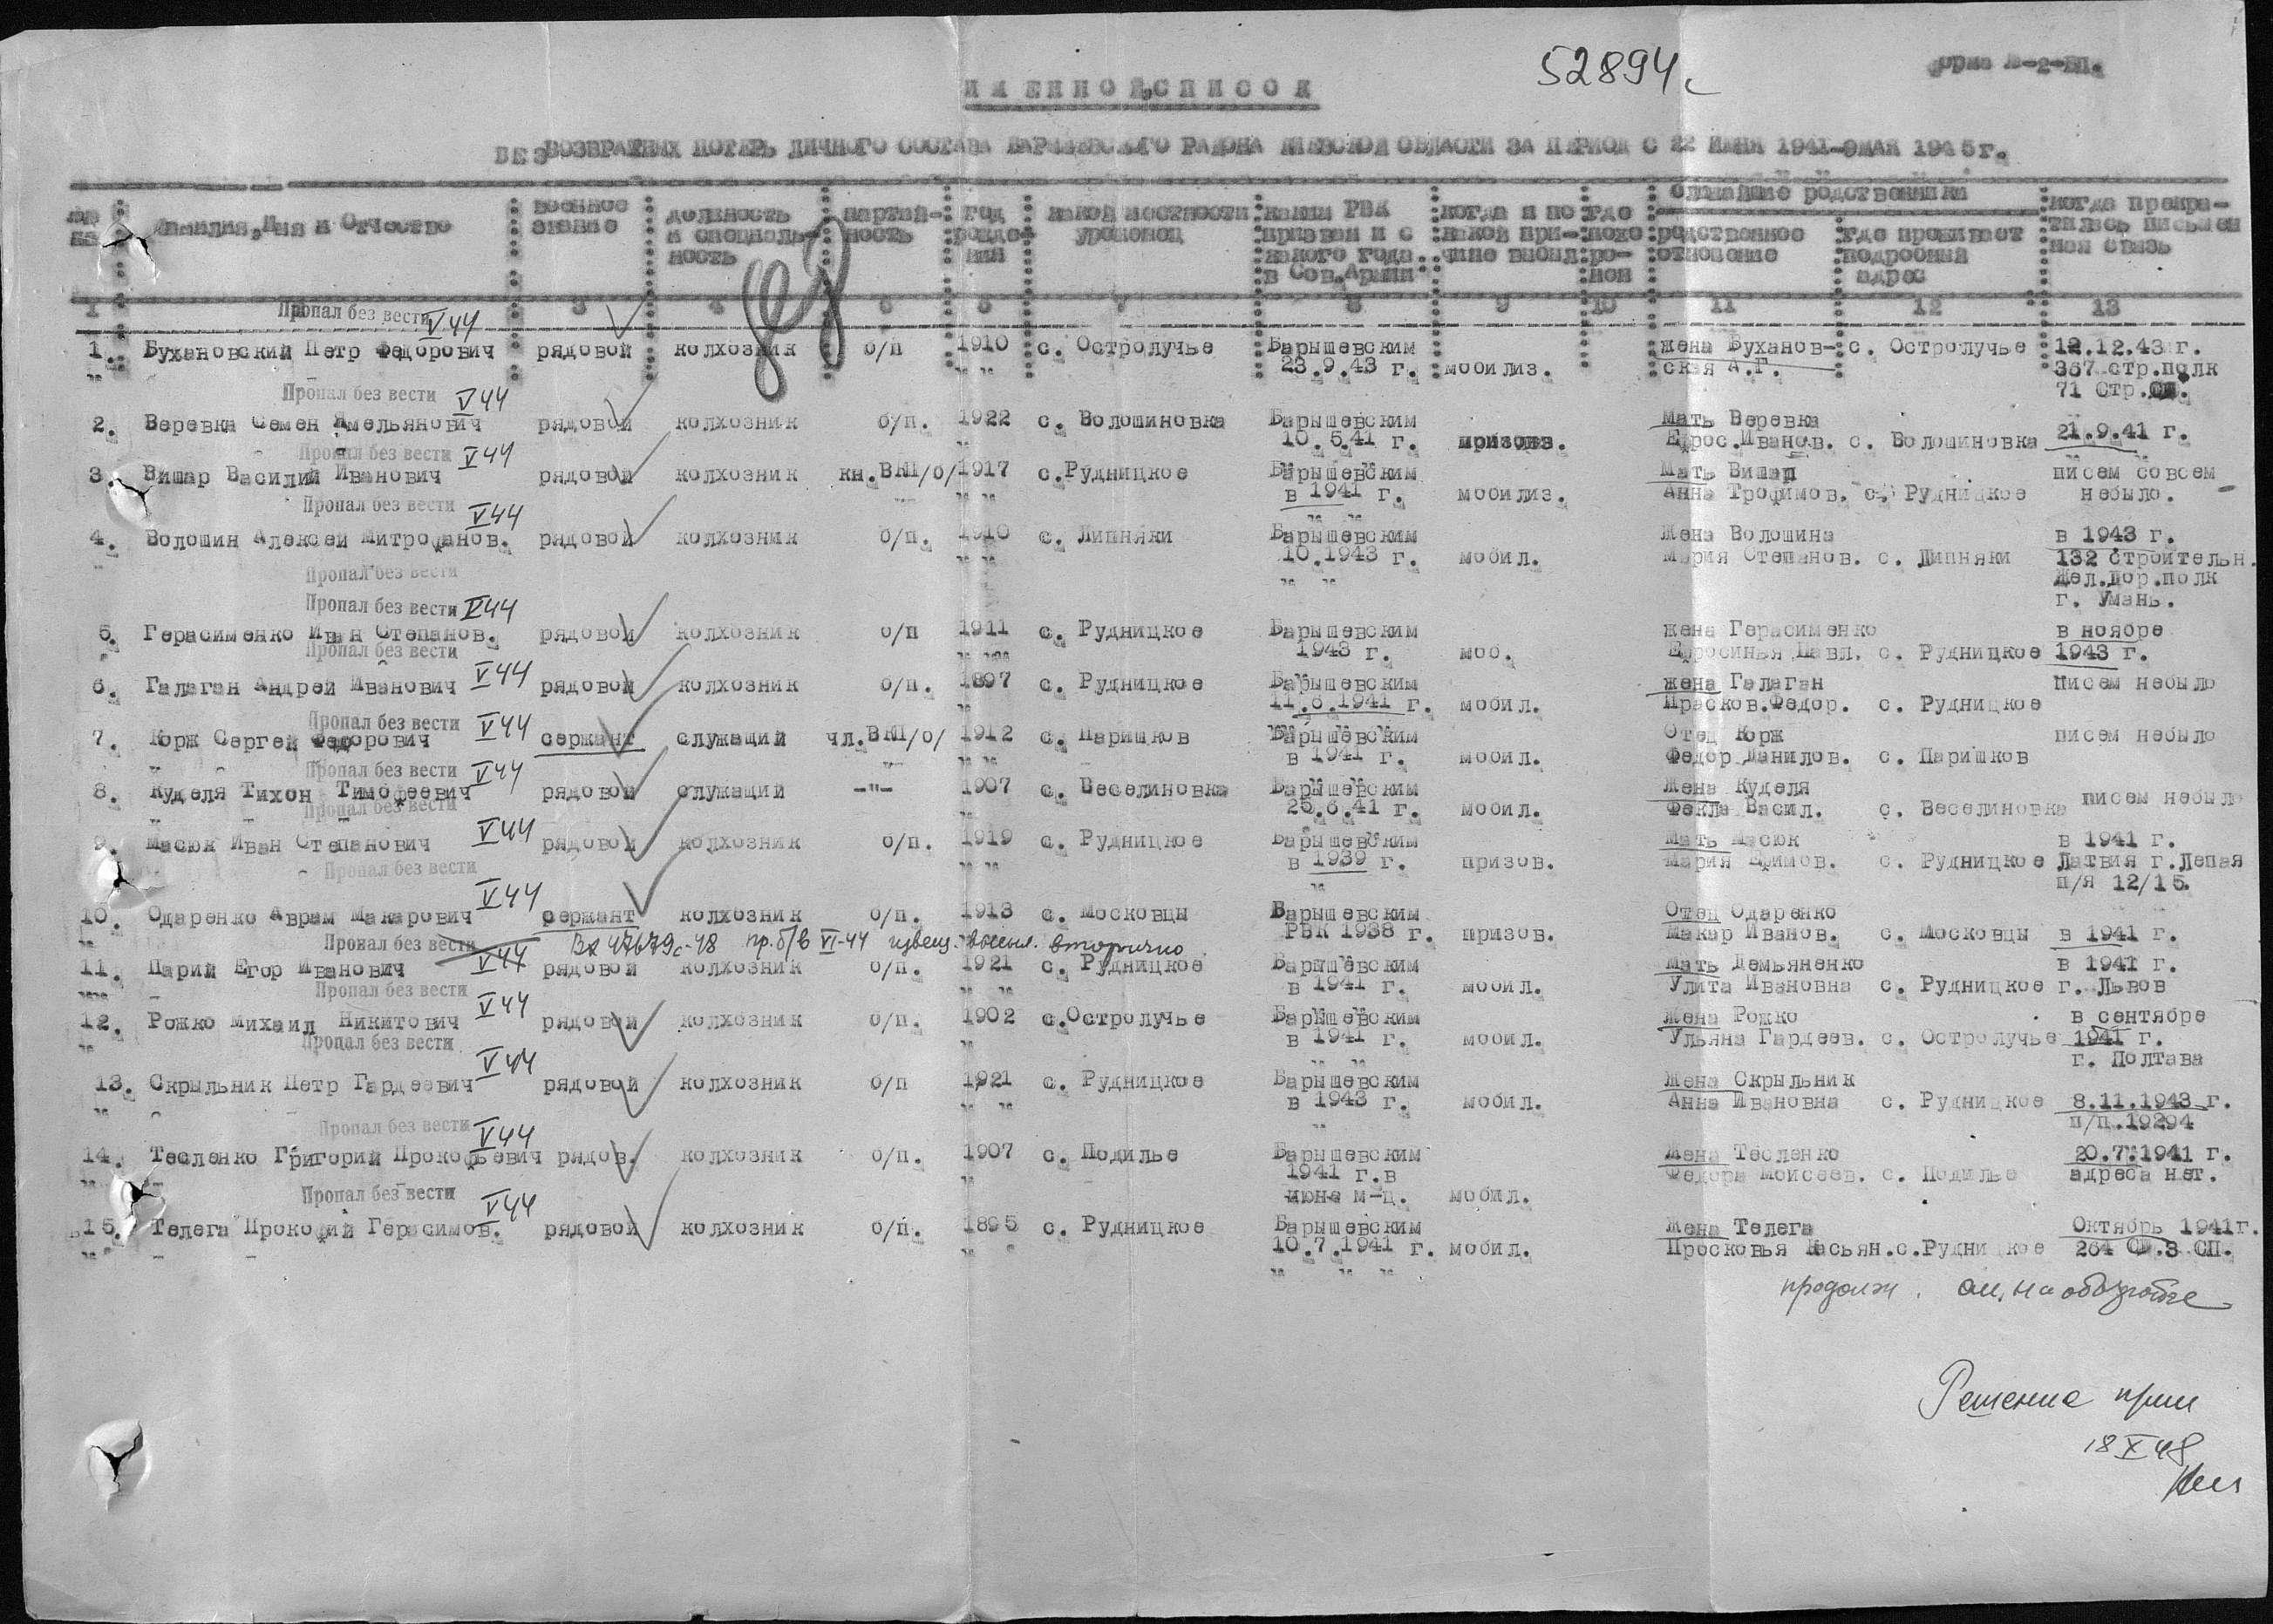 52894с
Форма №-2-БП.
ИМЕННОЙ СПИСОК
БЕЗВОЗВРАТНЫХ ПОТЕРЬ ЛИЧНОГО СОСТАВА БАРЫШЕВСКОГО РАЙОНА КИЕВСКОЙ ОБЛАСТИ ЗА ПЕРИОД С 22 ИЮНЯ 1941-9МАЯ 1945г.
№№ Фамилия, Имя и Отчество военное звание должность и специальность партийность год рождения какой местности уроженец каким РВК призван и с какого года в Сов.Армии когда и по какой причине выбыл где похоронен ближайшие родственники родственное отношение где проживает подробный адрес когда прекратилась письменная связь
1 3 4 5 6 7 8 9 10 11 12 13
Пропал без вести V 44
1. Бухановский Петр Федорович рядовой колхозник б/п 1910 с. Остролучье Барышевским жена Буханов- с. Остролучье 12.12.43 г.
23.9.43 г. мобилиз. ская А.Г. 367 стр.полк
71 Стр.
Пропал без вести V 44
2. Веревка Семен Амельянович рядовой колхозник б/п. 1922 с. Волошиновка Барышевским Мать Веревка
10.5.41 г. призов. Ефрос.Иванов. с. Волошиновка 21.9.41 г.
Пропал без вести V 44
3. Вишар Василий Иванович рядовой колхозник кн.ВКП/б/ 1917 с.Рудницкое Барышевским Мать Вишар писем совсем
в 1941 г. мобилиз. Анна Трофимов. с. Рудницкое небыло.
Пропал без вести V 44
4. Волошин Алексей Митрофанов. рядовой колхозник б/п. 1910 с. Липняки Барышевским Жена Волошина в 1943 г.
10.1943 г. мобил. Мария Степанов. с. Липняки 132 строительн.
Пропал без вести Жел.дор.полк
Пропал без вести V 44 г. Умань.
5. Герасименко Иван Степанов. рядовой колхозник б/п 1911 с. Рудницкое Барышевским жена Герасименко в ноябре
Пропал без вести 1943 г. моб. Ефросинья Павл. с. Рудницкое 1943 г.
V 44
6. Галаган Андрей Иванович рядовой колхозник б/п. 1897 с. Рудницкое Барышевским жена Галаган Писем небыло
11.6.1941 г. мобил. Прасков.Федор. с. Рудницкое
Пропал без вести V 44
7. Корж Сергей Федорович сержант служащий чл.ВКП/б/ 1912 с. Паришков Барышевским Отец Корж писем небыло
в 1941 г. мобил. Федор Данилов. с. Паришков
Пропал без вести V 44
8. Куделя Тихон Тимофеевич рядовой служащий -"- 1907 с. Веселиновка Барышевским Жена Куделя писем небыло
Пропал без вести 25.6.41 г. мобил. Фекла Васил. с. Веселиновка
V 44
9. Масюк Иван Степанович рядовой колхозник б/п. 1919 с. Рудницкое Барышевским Мать Масюк в 1941 г.
в 1939 г. призов. Мария Ефимов. с. Рудницкое Латвия г.Лепая
Пропал без вести п/я 12/15.
V 44
10. Одаренко Аврам Макарович сержант колхозник б/п. 1913 с. Московцы Барышевским Отец Одаренко
РВК 1938 г. призов. Макар Иванов. с. Московцы в 1941 г.
Пропал без вести V 44 Вх 47679с-48 пр.б/в VI-44 извещ. высыл. вторично
11. Парий Егор Иванович рядовой колхозник б/п. 1921 с. Рудницкое Барышевским Мать Демьяненко в 1941 г.
в 1941 г. мобил. Улита Ивановна с. Рудницкое г. Львов
Пропал без вести V 44
12. Рожко Михаил Никитович рядовой колхозник б/п. 1902 с.Остролучье Барышевским Жена Рожко в сентябре
в 1941 г. мобил. Ульяна Гардеев. с. Остролучье 1941 г.
Пропал без вести V 44 г. Полтава
13. Скрыльник Петр Гардеевич рядовой колхозник б/п 1921 с. Рудницкое Барышевским Жена Скрыльник
в 1943 г. мобил. Анна Ивановна с. Рудницкое 8.11.1943 г.
п/п.19294
Пропал без вести V 44
14. Тесленко Григорий Прокофьевич рядов. колхозник б/п. 1907 с. Подилье Барышевским Жена Тесленко 20.7.1941 г.
1941 г.в Федора Моисеев. с. Подилье адреса нет.
июне м-ц. мобил.
Пропал без вести V 44
15. Телега Прокофий Герасимов. рядовой колхозник б/п. 1895 с. Рудницкое Барышевским Жена Телега Октябрь 1941г.
10.7.1941 г. мобил. Просковья Касьян.с.Рудницкое 264 СП.3 СП.
продолж. см. на обороте
Решение прин
18 X 48